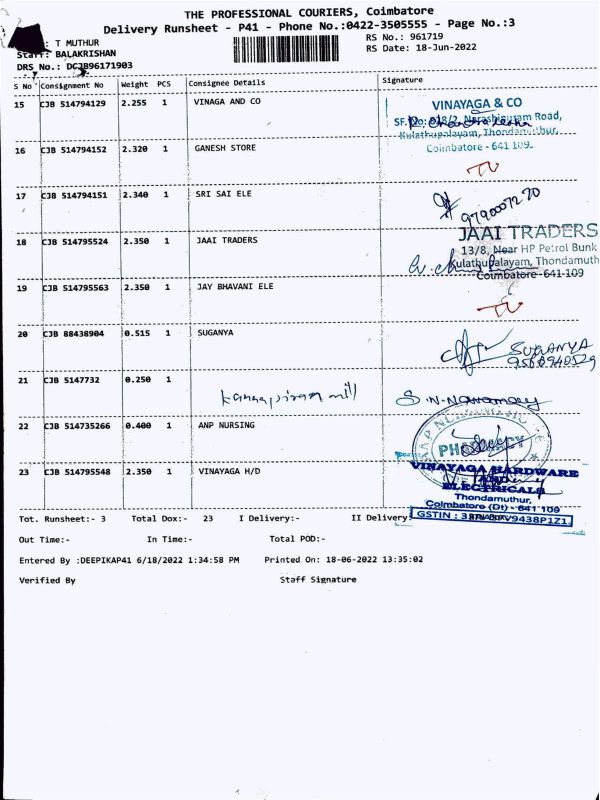 THE PROFESSIONAL COURIERS, Coimbatore
Delivery Runsheet - P41 - Phone No.:0422-3505555 - Page No.:3
: T MUTHUR
RS No.: 961719
Staff: BALAKRISHAN
RS Date: 18-Jun-2022
DRS No.: DCJB96171903
S No Consignment No Weight PCS Consignee Details Signature
15 CJB 514794129 2.255 1 VINAGA AND CO
VINAYAGA & CO
Narashipuram Road,
Kulathupalayam, Thondamuthur,
Coimbatore - 641 109.
16 CJB 514794152 2.320 1 GANESH STORE
17 CJB 514794151 2.340 1 SRI SAI ELE
9790007270
18 CJB 514795524 2.350 1 JAAI TRADERS
JAAI TRADERS
13/8, Near HP Petrol Bunk
Kulathupalayam, Thondamuth
Coimbatore-641-109
19 CJB 514795563 2.350 1 JAY BHAVANI ELE
20 CJB 88438904 0.515 1 SUGANYA
SUGANYA
21 CJB 5147732 0.250 1
22 CJB 514735266 0.400 1 ANP NURSING
PHARMACY
23 CJB 514795548 2.350 1 VINAYAGA H/D
VINAYAGA HARDWARE
AND
ELECTRICALS
Thondamuthur,
Coimbatore (Dt) - 641 109
Tot. Runsheet:- 3 Total Dox:- 23 I Delivery:- II Delivery:
Out Time:- In Time:- Total POD:-
Entered By :DEEPIKAP41 6/18/2022 1:34:58 PM Printed On: 18-06-2022 13:35:02
Verified By Staff Signature